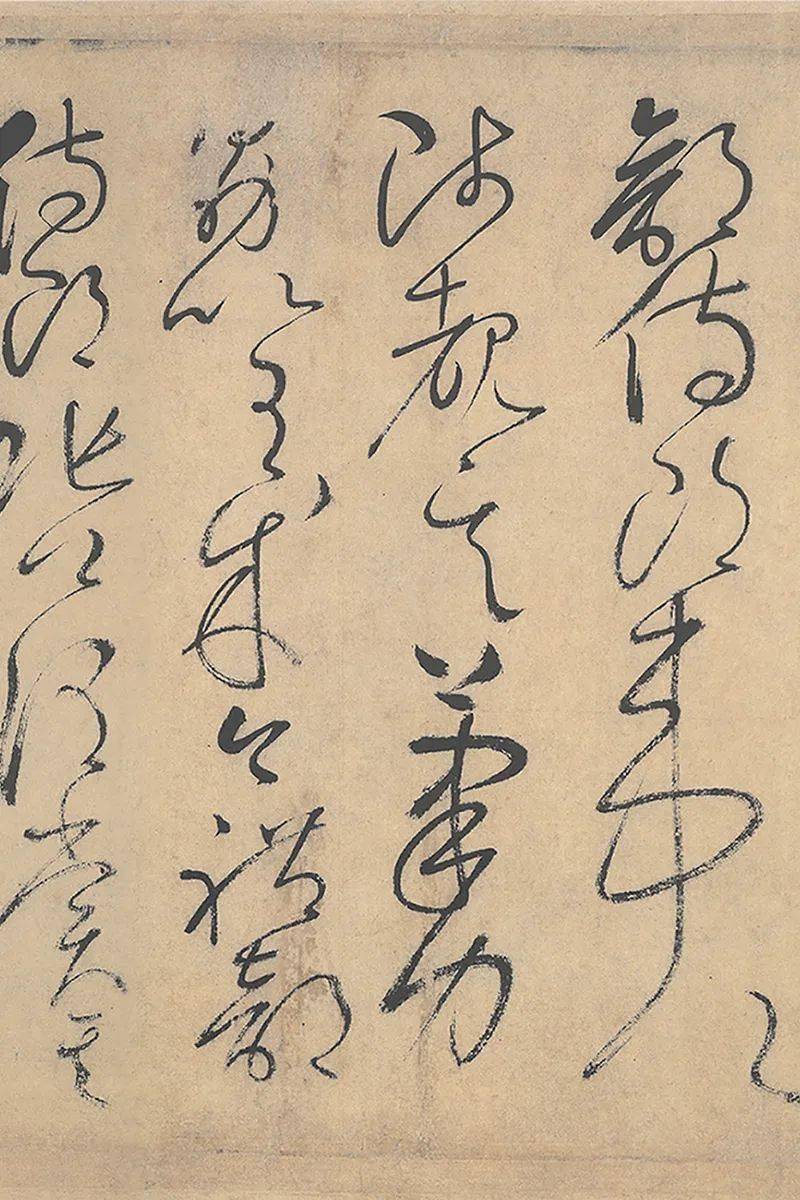 部侍郎韋
陟覩其筆力
勗以有成今禮部
侍郎張公謂賞其